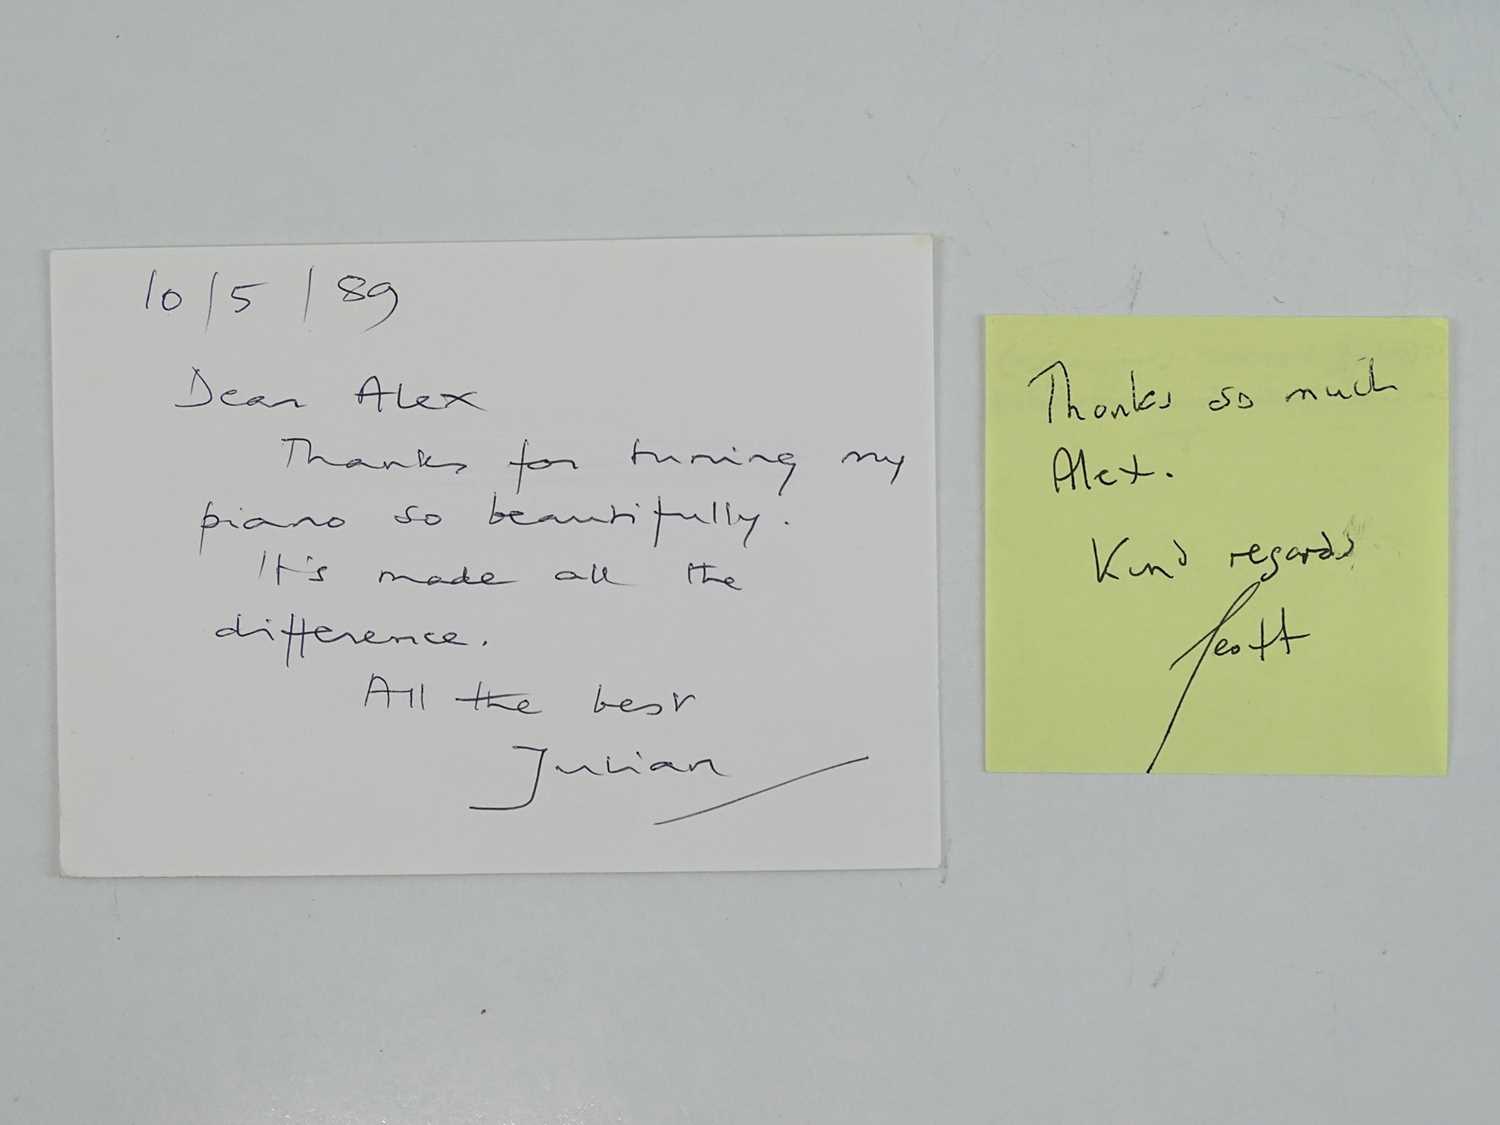 10/5/89
Dear Alex
Thanks for tuning my
piano so beautifully.
It's made all the
difference.
All the best
Julian
Thanks so much
Alex.
Kind regards